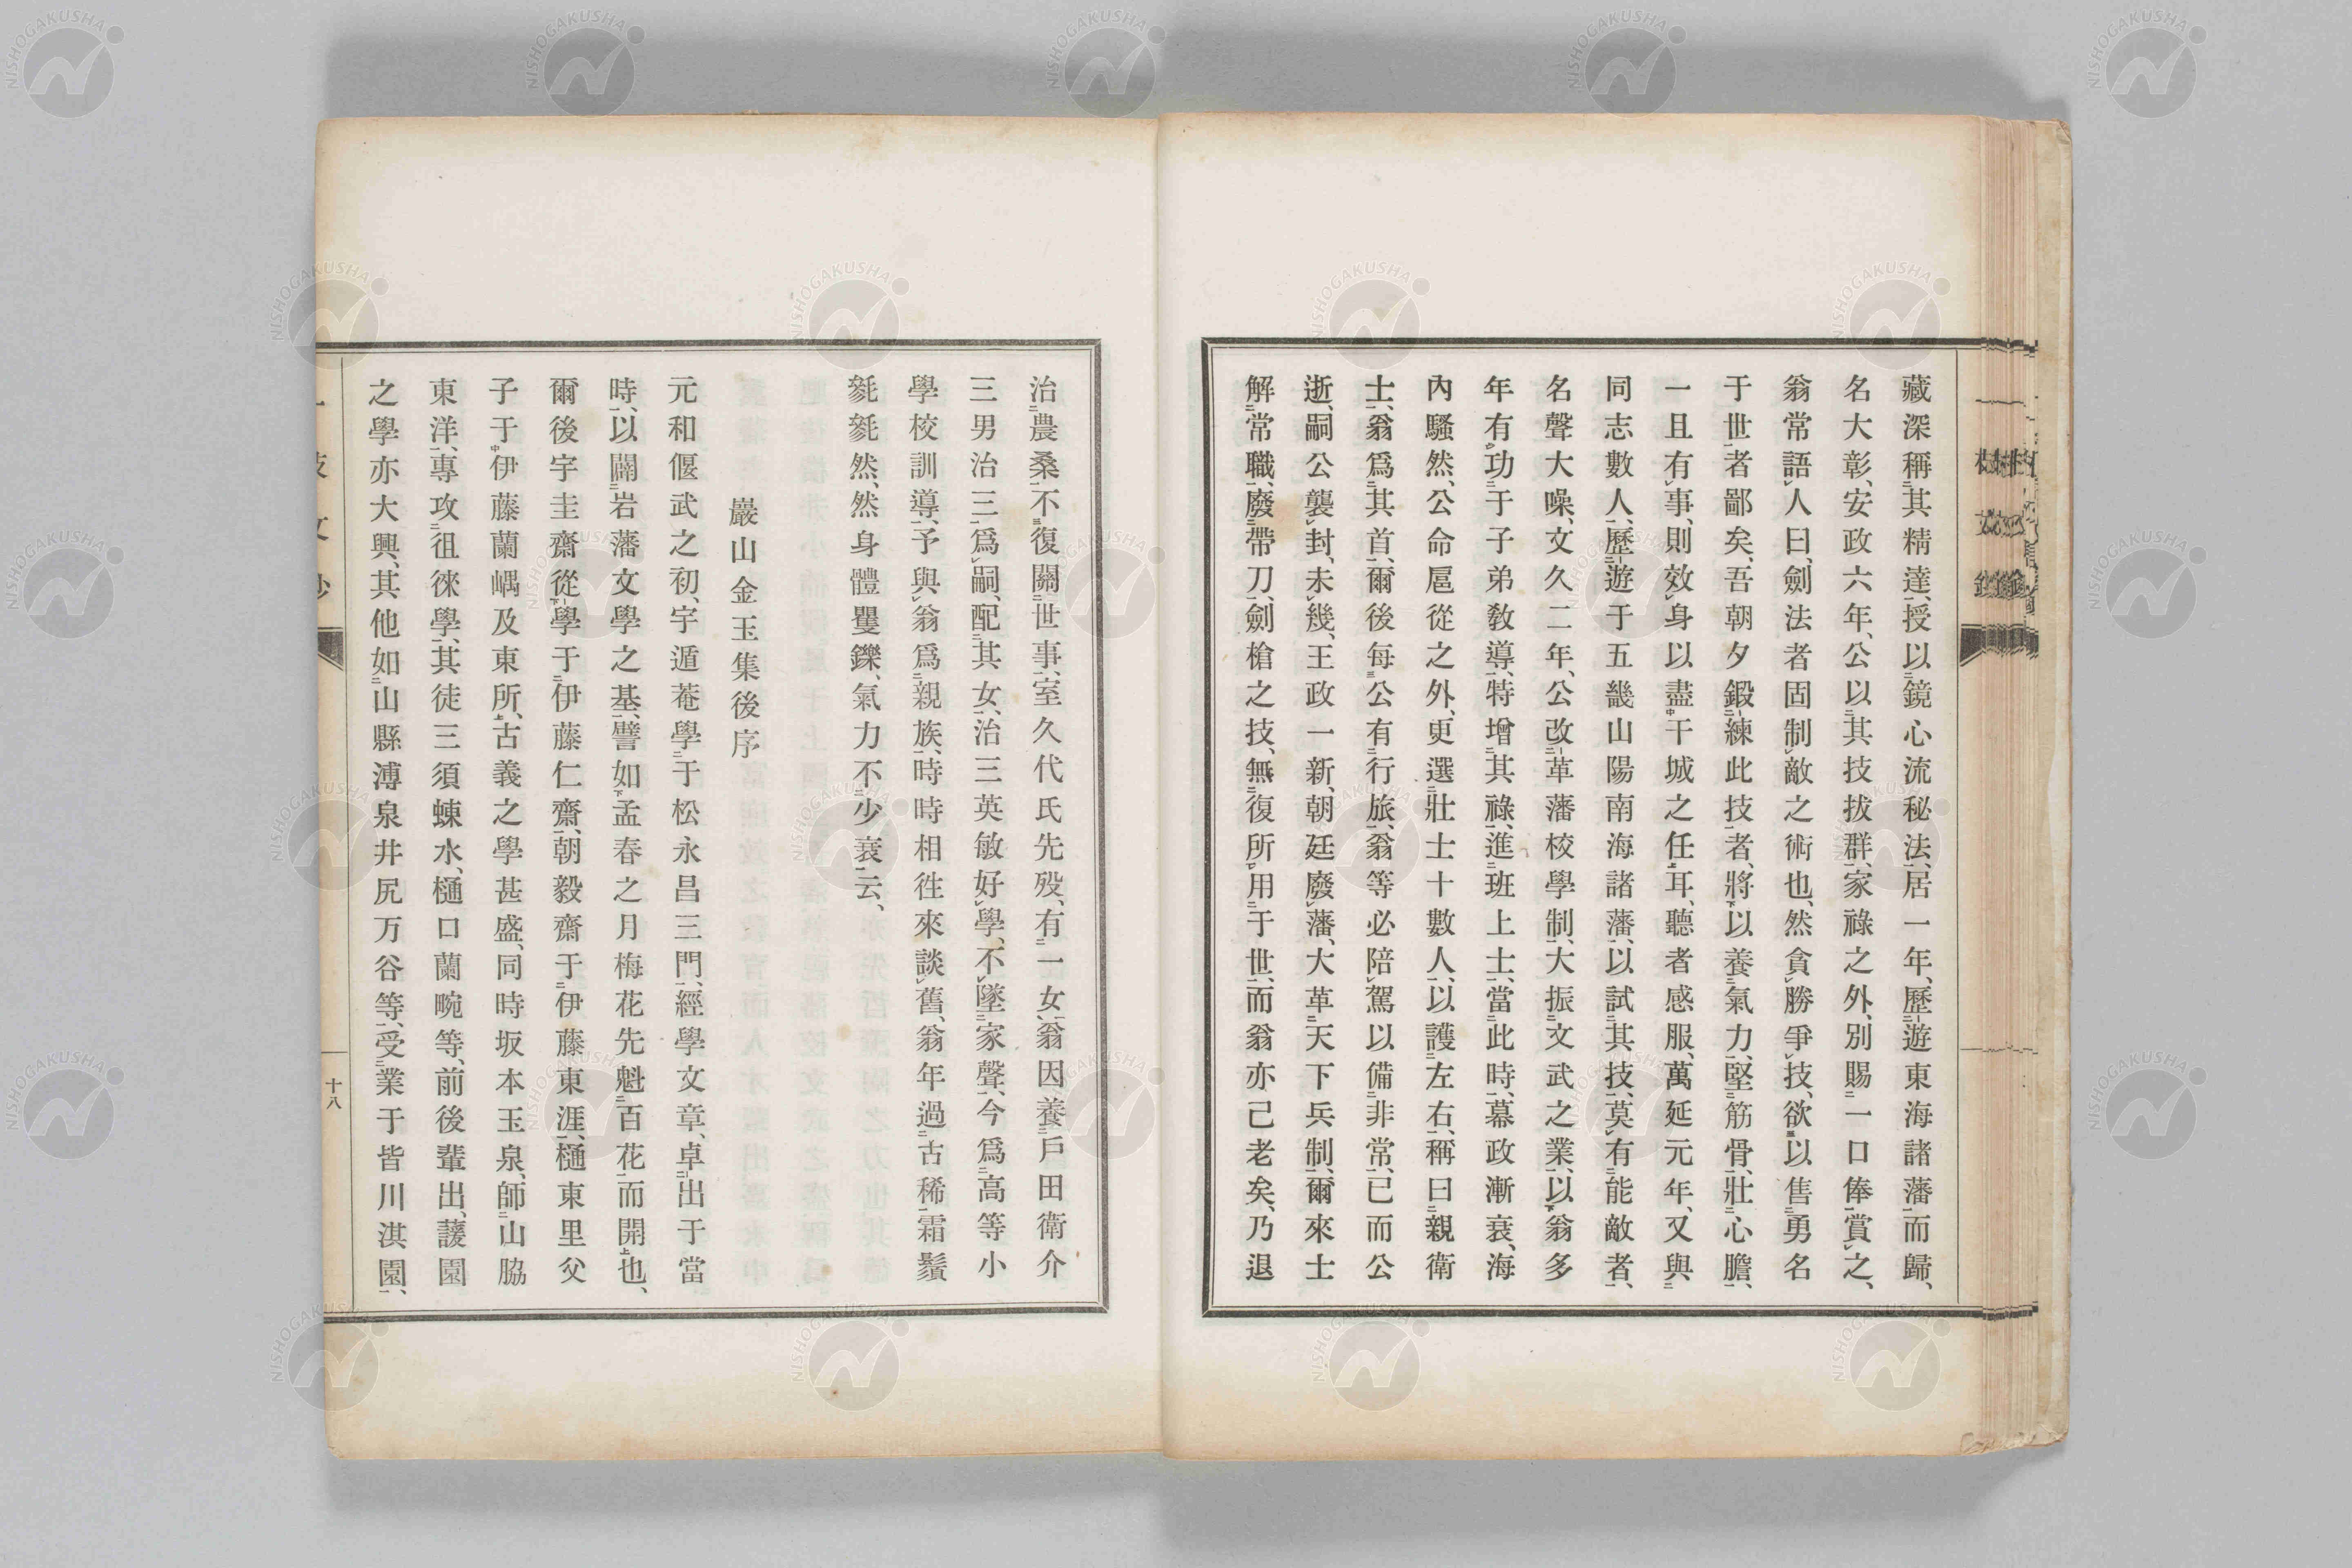 藏深稱其精達、授以鏡心流秘法、居一年、歷遊東海諸藩而歸、
名大彰、安政六年、公以其技拔群、家祿之外、別賜一口俸賞之、
翁常語人曰、劍法者固制敵之術也、然貪勝爭技、欲以售勇名
于世者鄙矣、吾朝夕鍛練此技者、將以養氣力、堅筋骨、壯心膽、
一且有事、則效身以盡干城之任耳、聽者感服、萬延元年、又與
同志數人、歷遊于五畿山陽南海諸藩、以試其技、莫有能敵者、
名聲大噪、文久二年、公改革藩校學制、大振文武之業、以翁多
年有功于子弟敎導、特增其祿、進班上士、當此時、幕政漸衰、海
內騷然、公命扈從之外、更選壯士十數人、以護左右、稱曰親衛
士、翁爲其首、爾後每公有行旅、翁等必陪駕以備非常、已而公
逝、嗣公襲封、未幾、王政一新、朝廷廢藩、大革天下兵制、爾來士
解常職、廢帶刀、劍槍之技、無復所用于世、而翁亦已老矣、乃退
治農桑、不復關世事、室久代氏先歿、有一女、翁因養戶田衛介
三男治三爲嗣、配其女、治三英敏好學、不墜家聲、今爲高等小
學校訓導、予與翁爲親族、時時相徃來談舊、翁年過古稀、霜鬚
毿毿然、然身體矍鑠、氣力不少衰云、
巖山金玉集後序
元和偃武之初、宇遁菴學于松永昌三門、經學文章、卓出于當
時、以闢岩藩文學之基、譬如孟春之月梅花先魁百花而開也、
爾後宇圭齋從學于伊藤仁齋、朝毅齋于伊藤東涯、樋東里父
子于伊藤蘭嵎及東所、古義之學甚盛、同時坂本玉泉、師山脇
東洋、專攻徂徠學、其徒三須蝀水、樋口蘭畹等、前後輩出、蘐園
之學亦大興、其他如山縣溥泉井尻万谷等、受業于皆川淇園、
十八